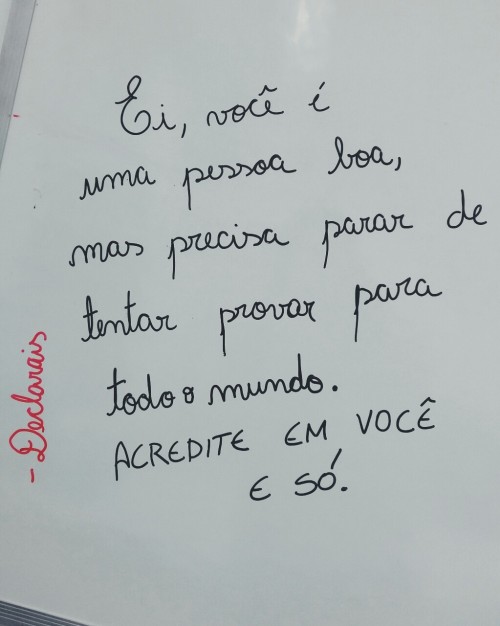 Ei, você é
uma pessoa boa,
mas precisa parar de
tentar provar para
todo o mundo.
ACREDITE EM VOCÊ
E SÓ.
- Declarais